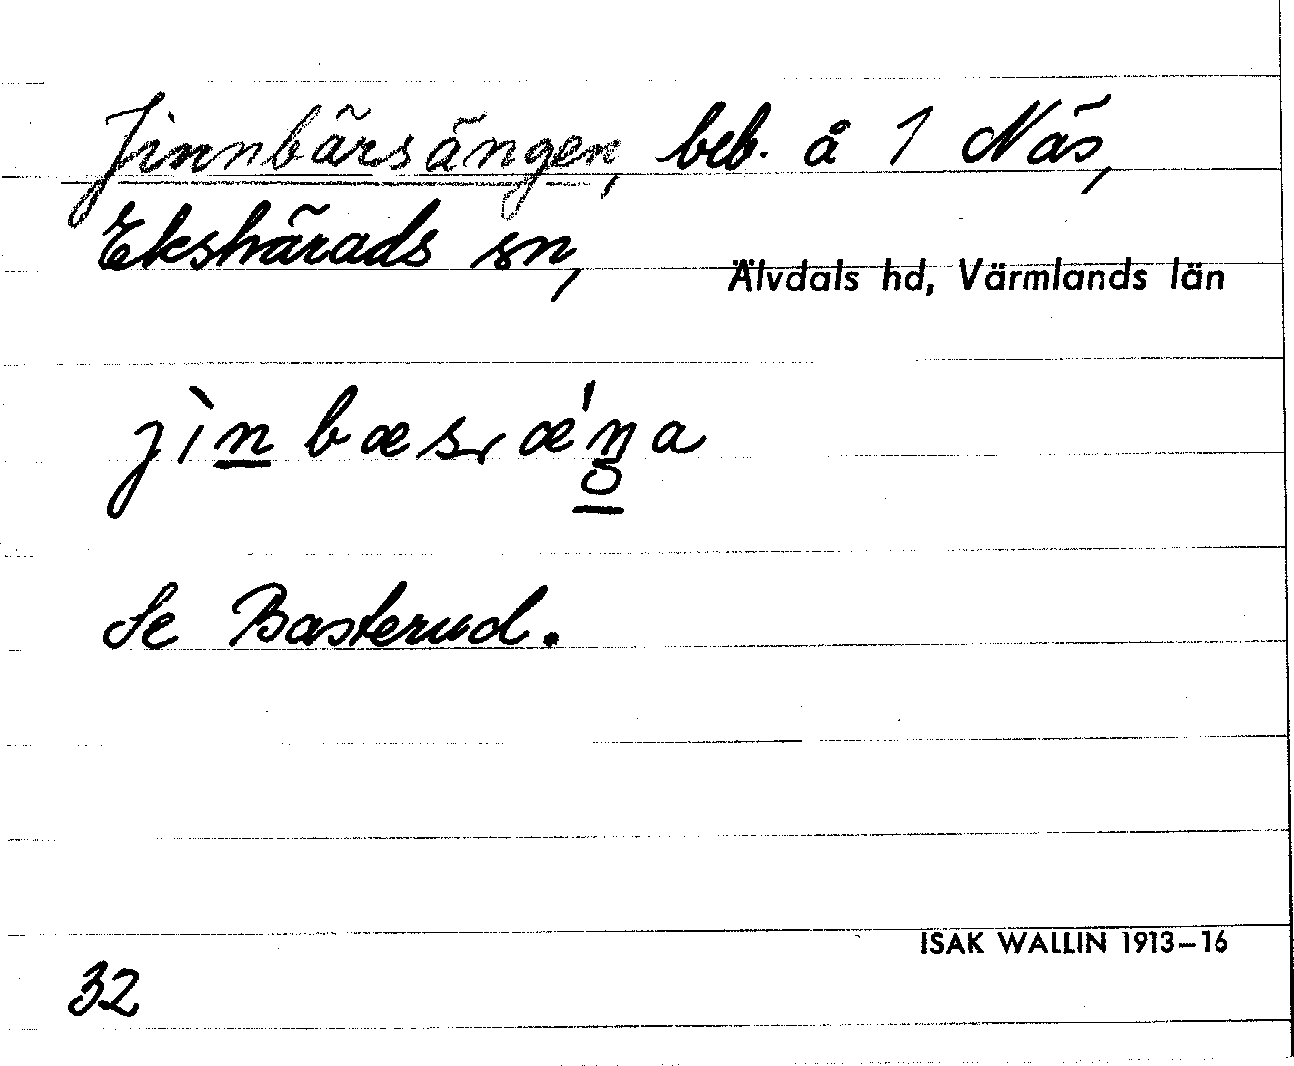 Jinnbärsängen, beb. å 1 Näs,
Ekshärads sn, Älvdals hd, Värmlands län
jìn bæsˌǽŋa
Se Basterud.
ISAK WALLIN 1913–16
32